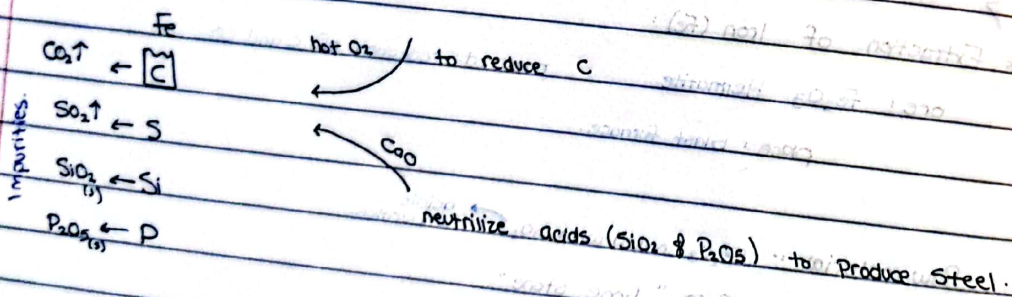 Fe
CO₂↑ ← C
hot O₂
to reduce C
Impurities.
SO₂↑ ← S
CaO
SiO₂(s) ← Si
P₂O₅(s) ← P
neutrilize acids (SiO₂ & P₂O₅) to Produce Steel.